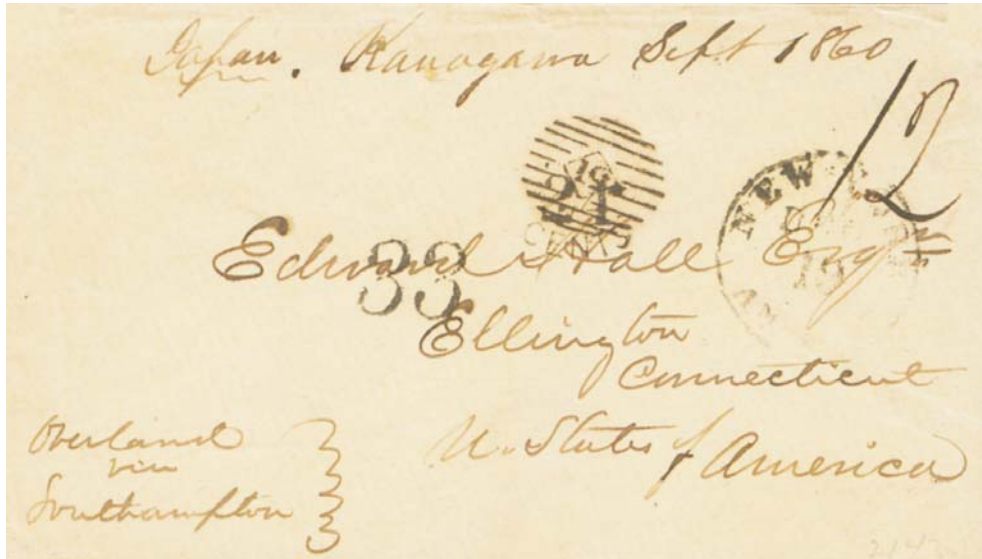 Japan. Kanagawa Sept 1860
12
21
NEW
33
Edward Hall Esqr
Ellington
Connecticut
U. States of America
Overland
via
Southampton